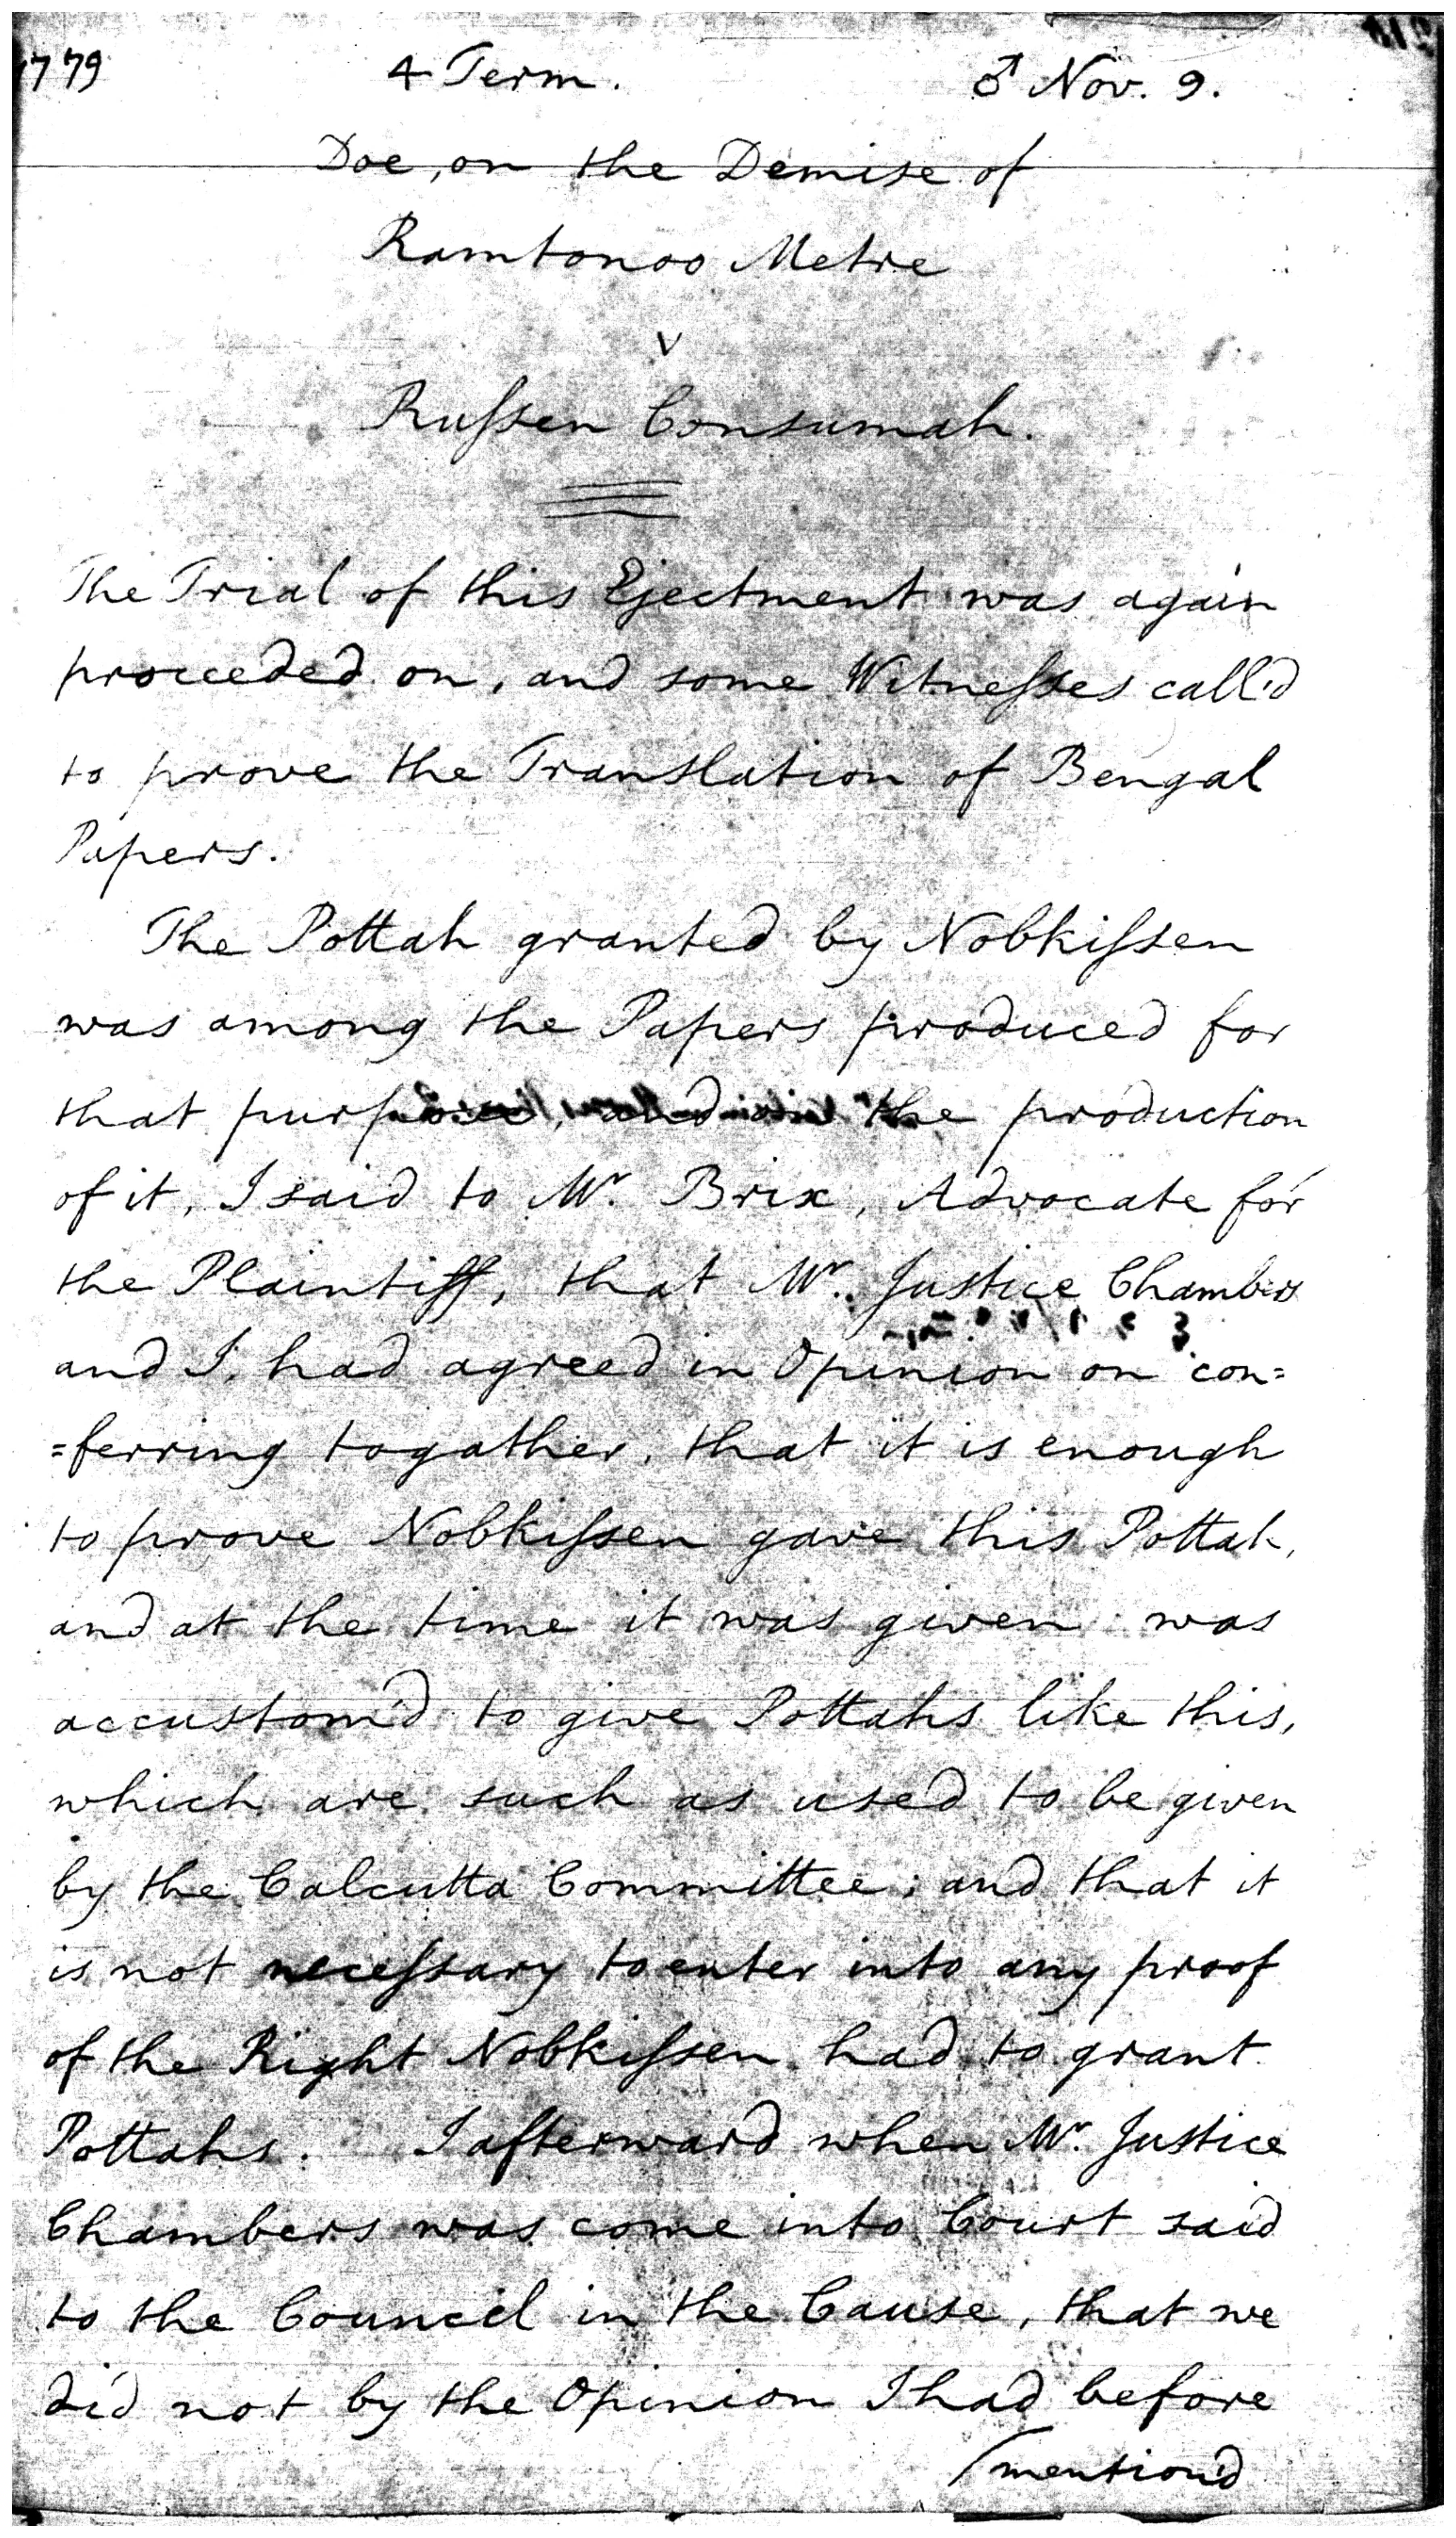 1779 4 Term. ♂ Nov. 9.
Doe, on the Demise of
Ramtonoo Metre
v
Rufsen Consumah.
The Trial of this Ejectment was again
proceeded on, and some Witnefses call'd
to prove the Translation of Bengal
Papers.
The Pottah granted by Nobkifsen
was among the Papers produced for
that purpose, and on the production
of it, I said to Mr. Brix, Advocate for
the Plaintiff, that Mr. Justice Chambers
and I, had agreed in Opinion on con=
=ferring togather, that it is enough
to prove Nobkifsen gave this Pottah,
and at the time it was given was
accustom'd to give Pottahs like this,
which are such as used to be given
by the Calcutta Committee; and that it
is not necefsary to enter into any proof
of the Right Nobkifsen had to grant
Pottahs. I afterward when Mr. Justice
Chambers was come into Court said
to the Council in the Cause, that we
did not by the Opinion I had before
mention'd